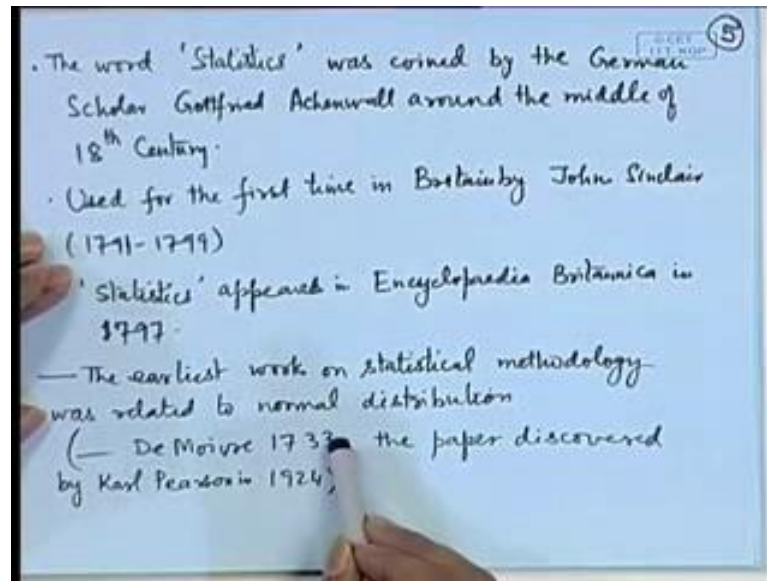 © CET
I.I.T. KGP
5
. The word 'Statistics' was coined by the German
Scholar Gottfried Achenwall around the middle of
18th Century.
. Used for the first time in Britain by John Sinclair
(1791-1799)
'Statistics' appeared in Encyclopaedia Britannica in
1797.
— The earliest work on statistical methodology
was related to normal distribution
(— De Moivre 1733 the paper discovered
by Karl Pearson in 1924)